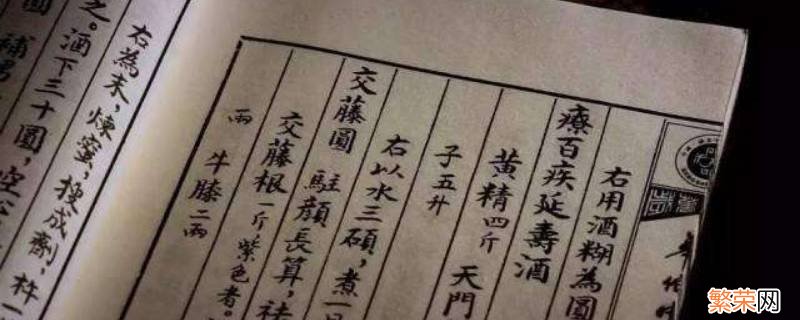 右用酒糊為圓
療百疾延壽酒
黃精四斤 天門
子五升
右以水三碩，煮一
交藤圓 駐顏長算，祛
交藤根一斤，紫色者。
兩 牛膝二兩
右為末，煉蜜，搜成劑，杵一
之。酒下三十圓，空
圓 補男
繁荣网
www.fanrong.net